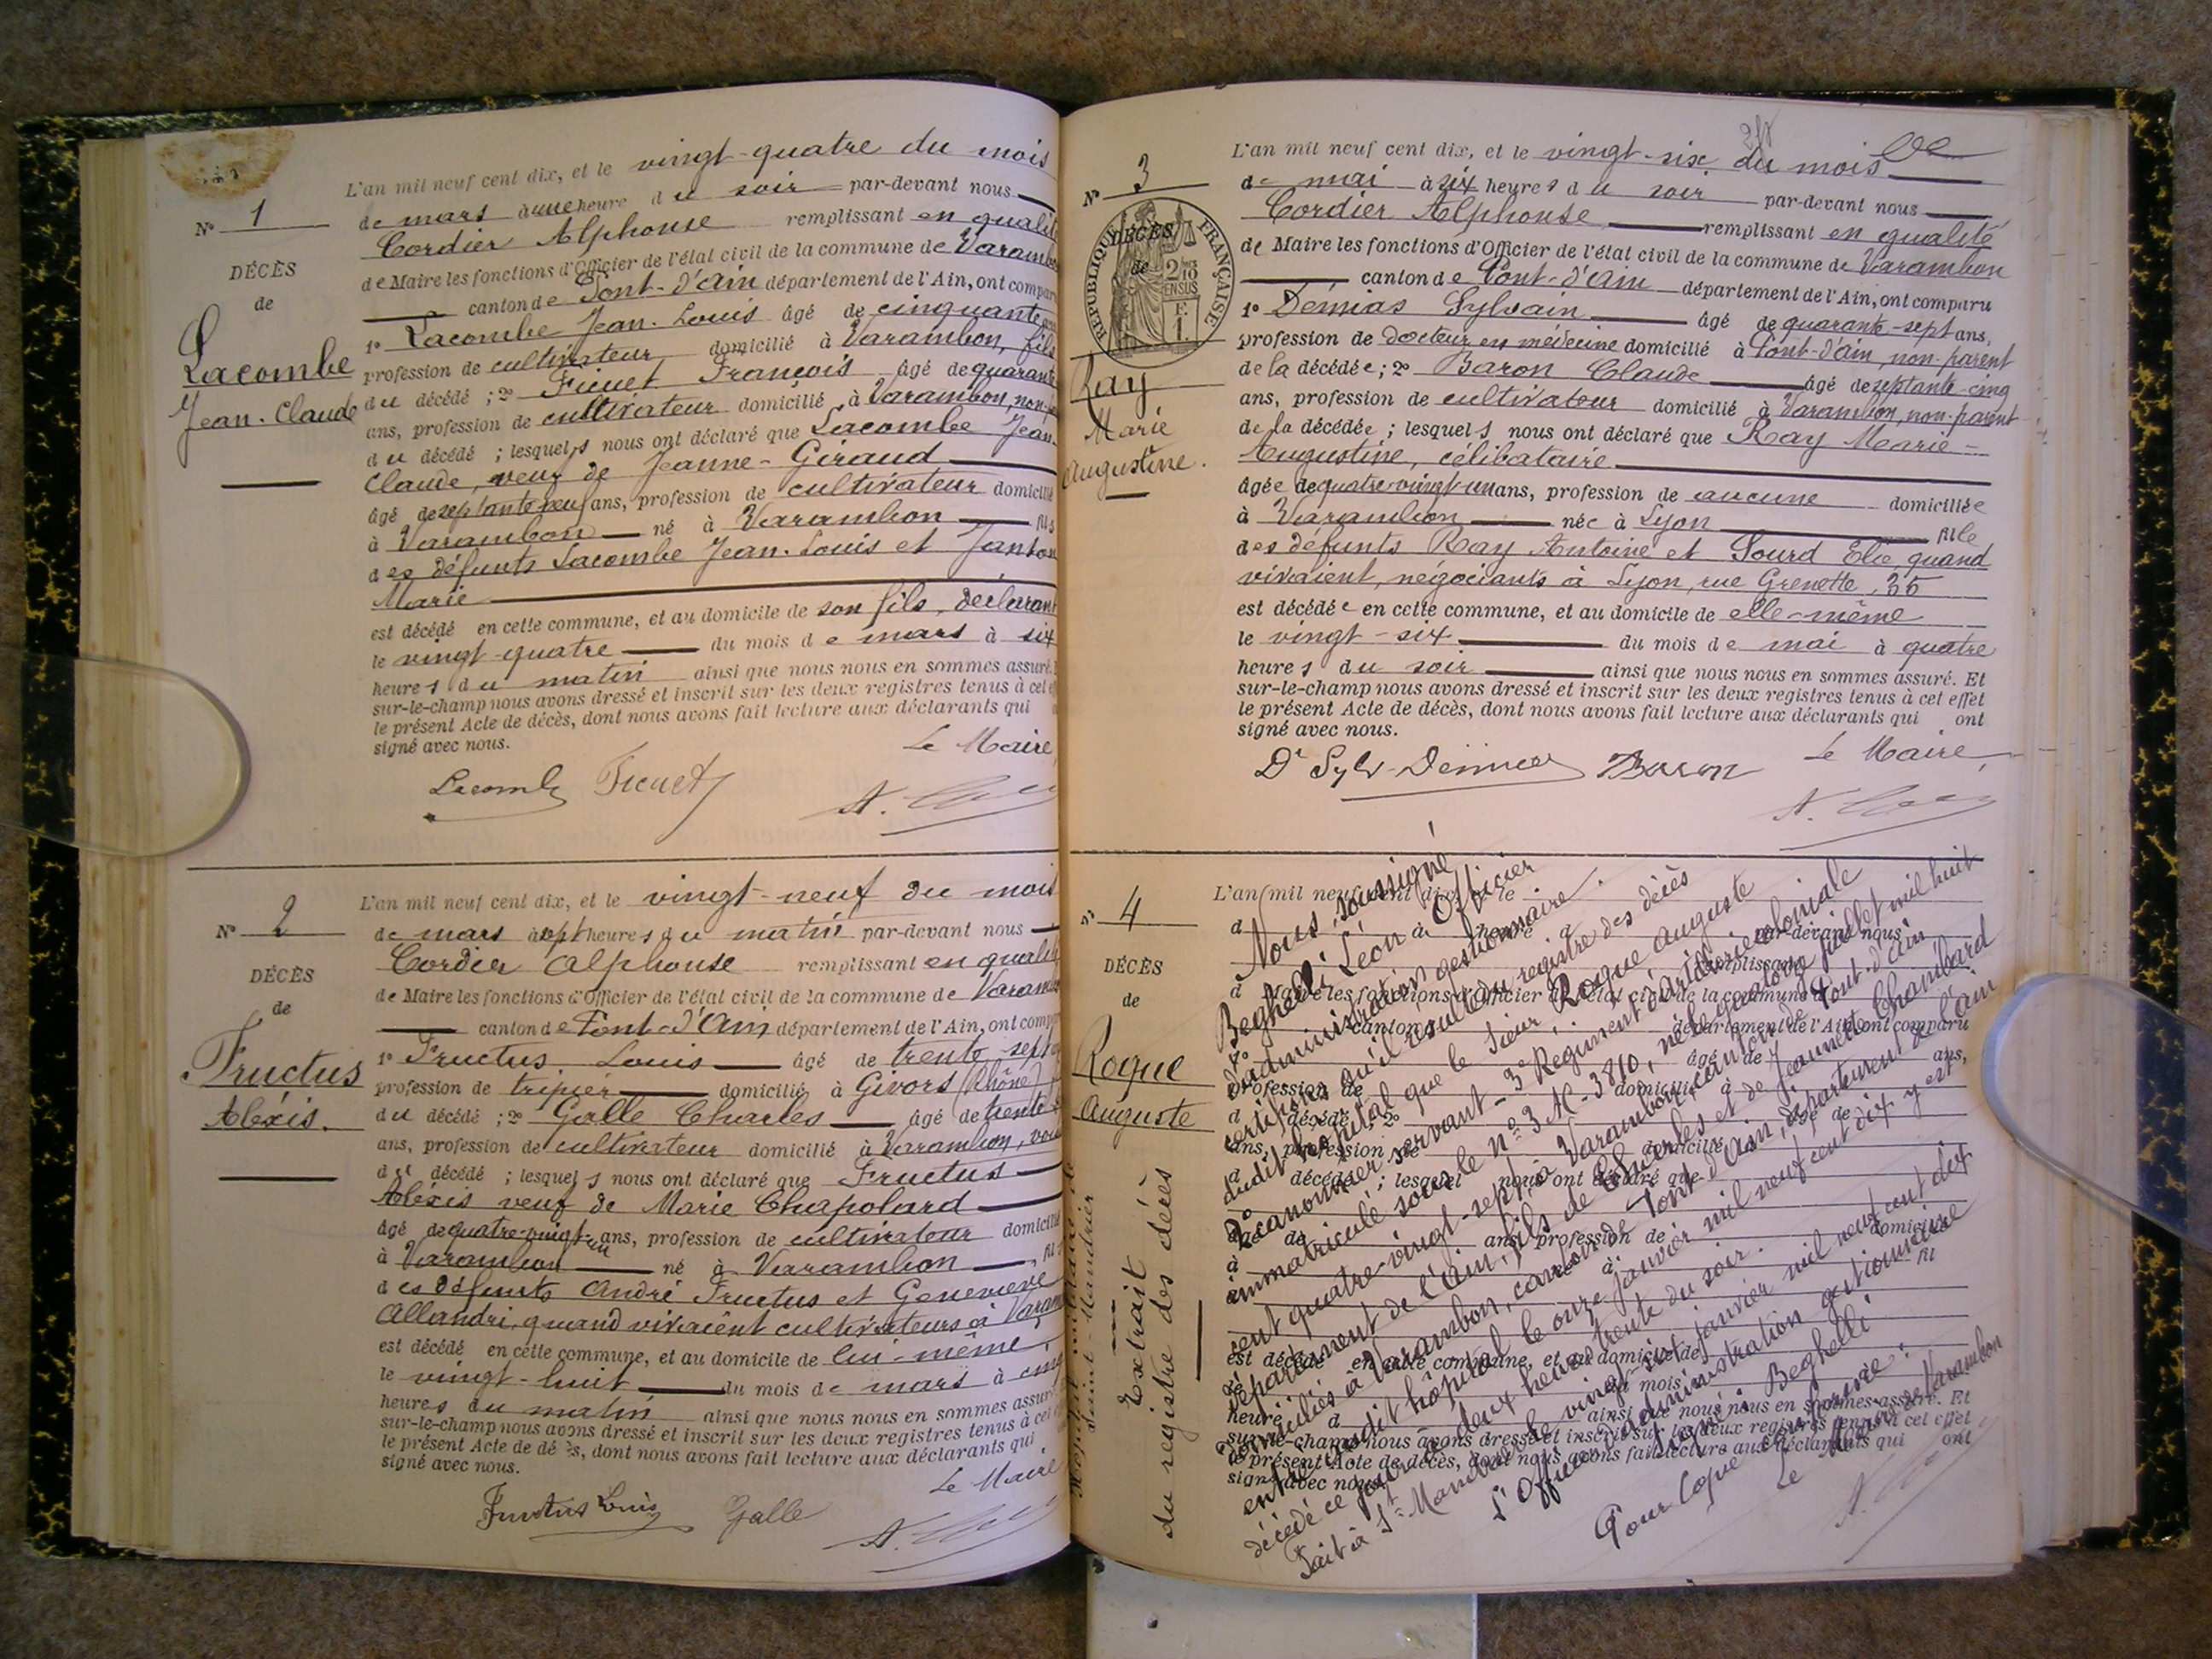 L'an mil neuf cent dix, et le vingt-quatre du mois
de mars à une heure du soir par-devant nous
Cordier Alphonse remplissant en qualité
de Maire les fonctions d'Officier de l'état civil de la commune de Varambon
canton de Pont-d'Ain département de l'Ain, ont comparu
1° Lacombe Jean-Louis âgé de cinquante
profession de cultivateur domicilié à Varambon, fils
du décédé ; 2° Ficuet François âgé de quarante
ans, profession de cultivateur domicilié à Varambon, non-
du décédé ; lesquels nous ont déclaré que Lacombe Jean-
Claude, veuf de Jeanne-Giraud
âgé de septante-neuf ans, profession de cultivateur domicilié
à Varambon né à Varambon fils
des défunts Lacombe Jean-Louis et Janton
Marie
est décédé en cette commune, et au domicile de son fils, déclarant
le vingt-quatre du mois de mars à six
heures du matin ainsi que nous nous en sommes assuré.
sur-le-champ nous avons dressé et inscrit sur les deux registres tenus à cet
le présent Acte de décès, dont nous avons fait lecture aux déclarants qui
signé avec nous.
Le Maire,
Lacombe Ficuet
N° 1
DÉCÈS
de
Lacombe
Jean-Claude
L'an mil neuf cent dix, et le vingt-neuf du mois
de mars à sept heures du matin par-devant nous
Cordier Alphonse remplissant en qualité
de Maire les fonctions d'Officier de l'état civil de la commune de Varambon
canton de Pont-d'Ain département de l'Ain, ont comparu
1° Fructus Louis âgé de trente sept
profession de tripier domicilié à Givors (Rhône)
du décédé ; 2° Galle Charles âgé de trente
ans, profession de cultivateur domicilié à Varambon,
du décédé ; lesquels nous ont déclaré que Fructus
Aléxis veuf de Marie Chapolard
âgé de quatre-vingt-un ans, profession de cultivateur domicilié
à Varambon né à Varambon
des défunts André Fructus et Geneviève
Allandri, quand vivaient cultivateurs à Varambon
est décédé en cette commune, et au domicile de lui-même
le vingt-huit du mois de mars à cinq
heures du matin ainsi que nous nous en sommes assuré
sur-le-champ nous avons dressé et inscrit sur les deux registres tenus à cet
le présent Acte de décès, dont nous avons fait lecture aux déclarants qui
signé avec nous.
Le Maire
Fructus Louis Galle
N° 2
DÉCÈS
de
Fructus
Aléxis.
L'an mil neuf cent dix, et le vingt-six du mois
de mai à six heures du soir par-devant nous
Cordier Alphonse remplissant en qualité
de Maire les fonctions d'Officier de l'état civil de la commune de Varambon
canton de Pont-d'Ain département de l'Ain, ont comparu
1° Démias Sylvain âgé de quarante-sept ans,
profession de docteur en médecine domicilié à Pont-d'ain, non-parent
de la décédée ; 2° Baron Claude âgé de septante-cinq
ans, profession de cultivateur domicilié à Varambon, non-parent
de la décédée ; lesquels nous ont déclaré que Ray Marie-
Augustine, célibataire
âgée de quatre-vingt-un ans, profession de aucune domiciliée
à Varambon née à Lyon fille
des défunts Ray Antoine et Sourd Elie, quand
vivaient, négociants à Lyon, rue Grenette, 35
est décédée en cette commune, et au domicile de elle-même
le vingt-six du mois de mai à quatre
heures du soir ainsi que nous nous en sommes assuré. Et
sur-le-champ nous avons dressé et inscrit sur les deux registres tenus à cet effet
le présent Acte de décès, dont nous avons fait lecture aux déclarants qui ont
signé avec nous.
Le Maire,
Dr Sylv-Démias Baron
N° 3
RÉPUBLIQUE FRANÇAISE
DÉCÈS
de
Ray
Marie
Augustine.
N° 4
DÉCÈS
de
Roque
Auguste
Extrait
du registre des décès
Nous, soussigné
Beghelli Léon Officier
d'administration gestionnaire.
certifions qu'il résulte du registre des décès
dudit hôpital que le Sieur Roque Auguste
canonnier servant - 3e Régiment d'artillerie coloniale
immatriculé sous le n° 3810, né le quatorze juillet mil huit
cent quatre-vingt-sept à Varambon, canton de Pont-d'ain
département de l'Ain, fils de Charles et de Jeannette Chambard
domiciliés à Varambon, canton de Pont-d'Ain, département de l'ain
entré audit hôpital le onze janvier mil neuf cent dix y est
décédé ce jour à deux heures trente du soir.
Fait à St Mandrier le vingt janvier mil neuf cent dix
L'Officier d'administration gestionnaire
signé: Beghelli
Pour Copie Conforme:
Le Maire de Varambon